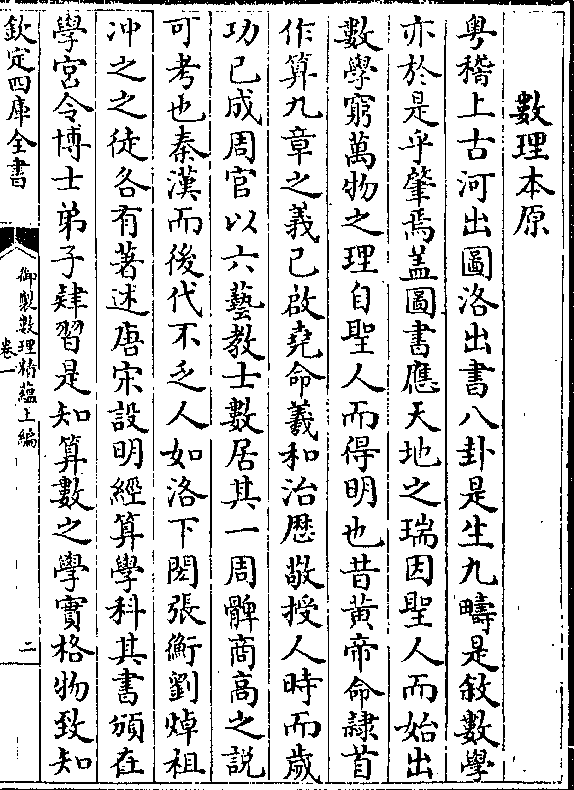 數理本原
粤稽上古河出圖洛出書八卦是生九疇是敘數學
亦於是乎肇焉蓋圖書應天地之瑞因聖人而始出
數學窮萬物之理自聖人而得明也昔黃帝命隷首
作算九章之義已啟堯命羲和治厯敬授人時而歲
功已成周官以六藝教士數居其一周髀商高之説
可考也秦漢而後代不乏人如洛下閎張衡劉焯祖
冲之之徒各有著述唐宋設明經算學科其書頒在
學宫令博士弟子肄習是知算數之學實格物致知
欽定四庫全書
御製數理精蘊上編
卷一
二